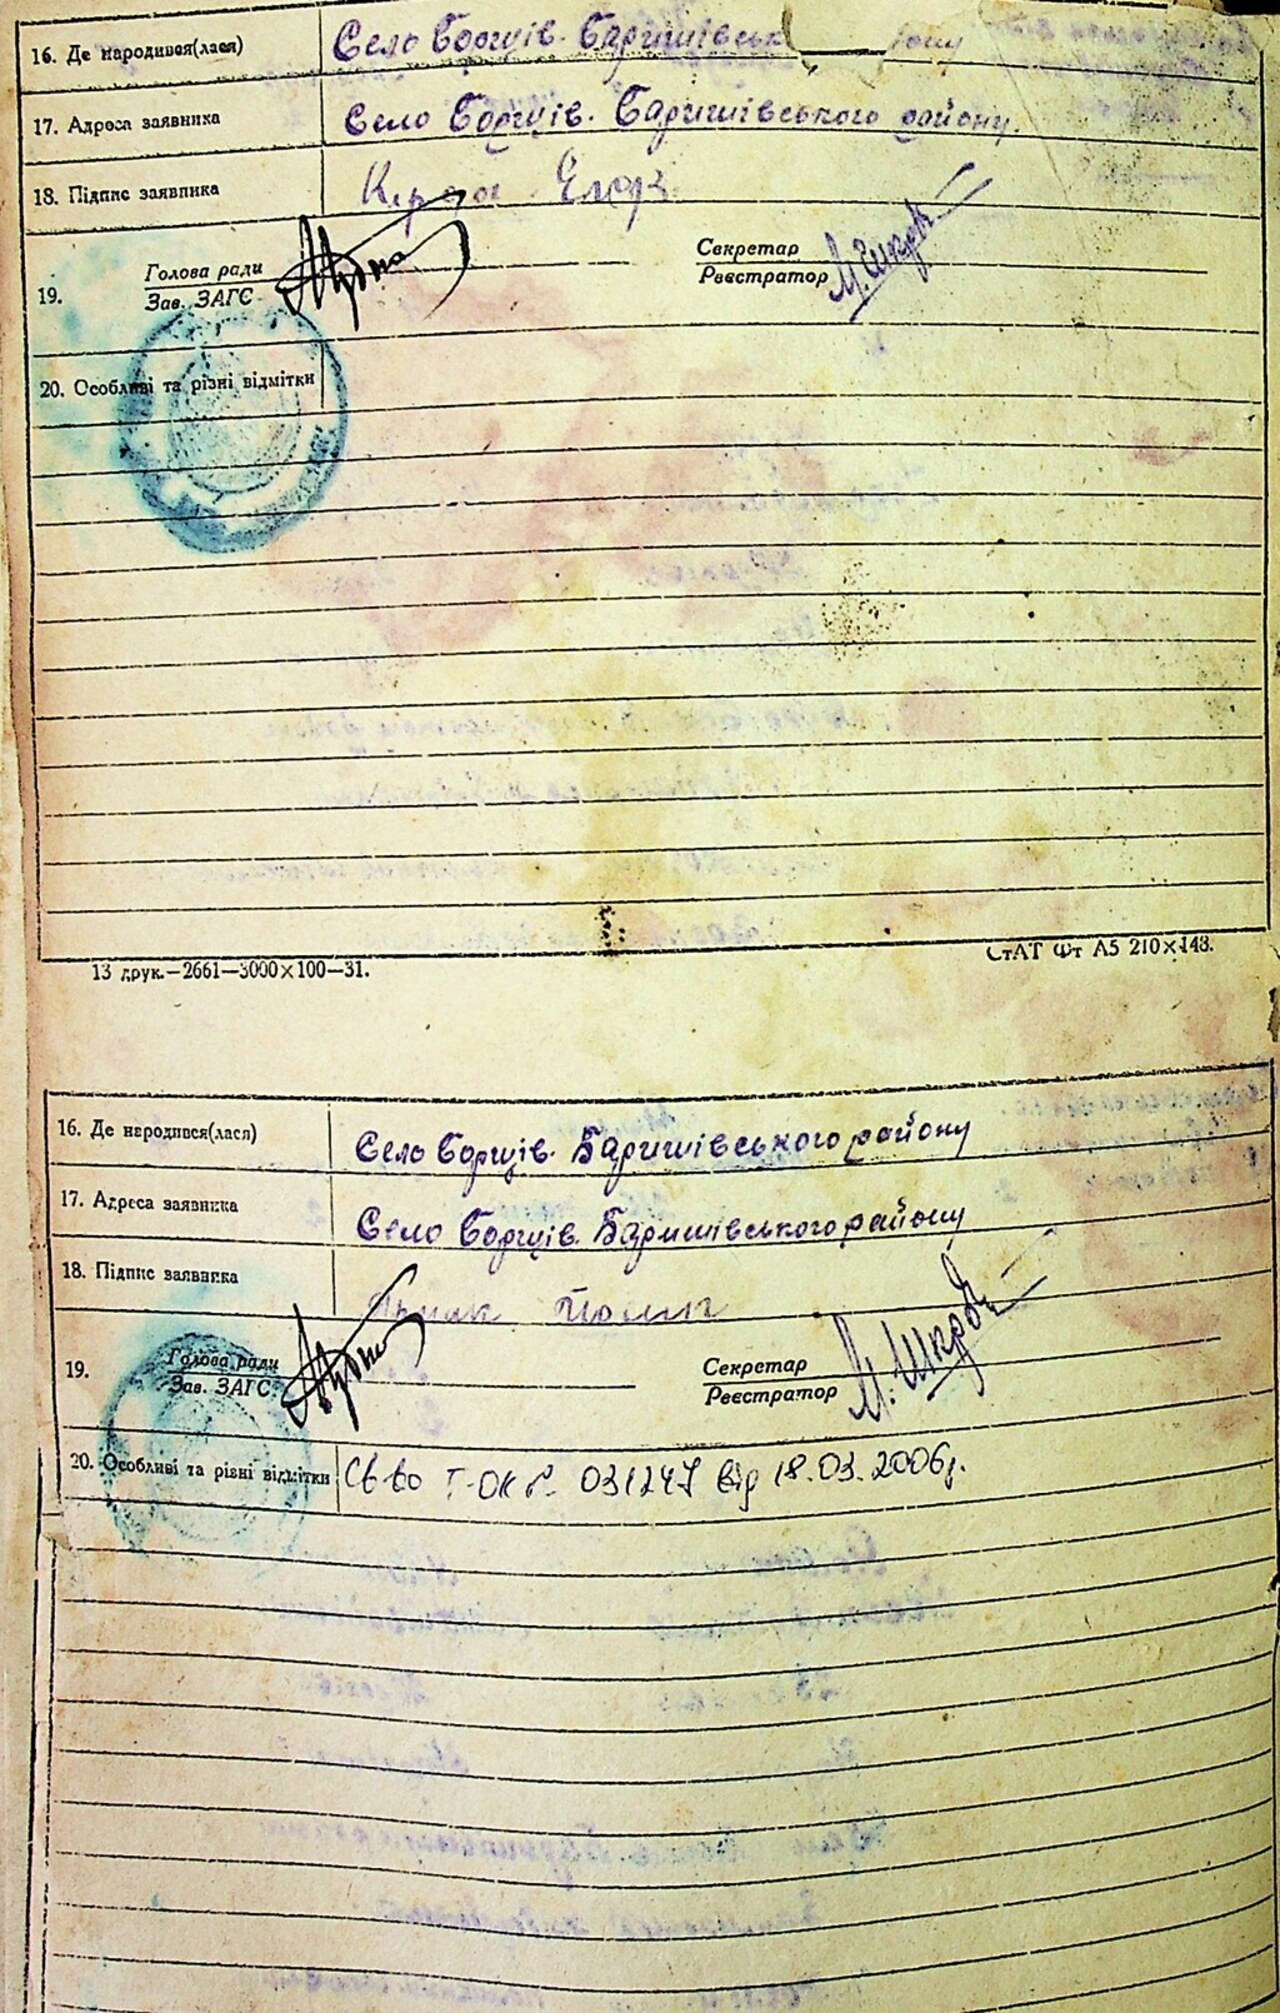 16. Де народився(лася) Село Борщів. Баришівськ
17. Адреса заявника Село Борщів. Баришівського району.
18. Підпис заявника
Голова ради Секретар
19. Зав. ЗАГС Реєстратор
20. Особливі та різні відмітки
13 друк.—2661—3000×100—31. СтАТ Фт А5 210×148.
16. Де народився(лася) Село Борщів. Баришівського району
17. Адреса заявника Село Борщів. Баришівського району
18. Підпис заявника
Голова ради Секретар
19. Зав. ЗАГС Реєстратор
20. Особливі та різні відмітки Св-во І-ОК № 031247 від 18.03.2006р.